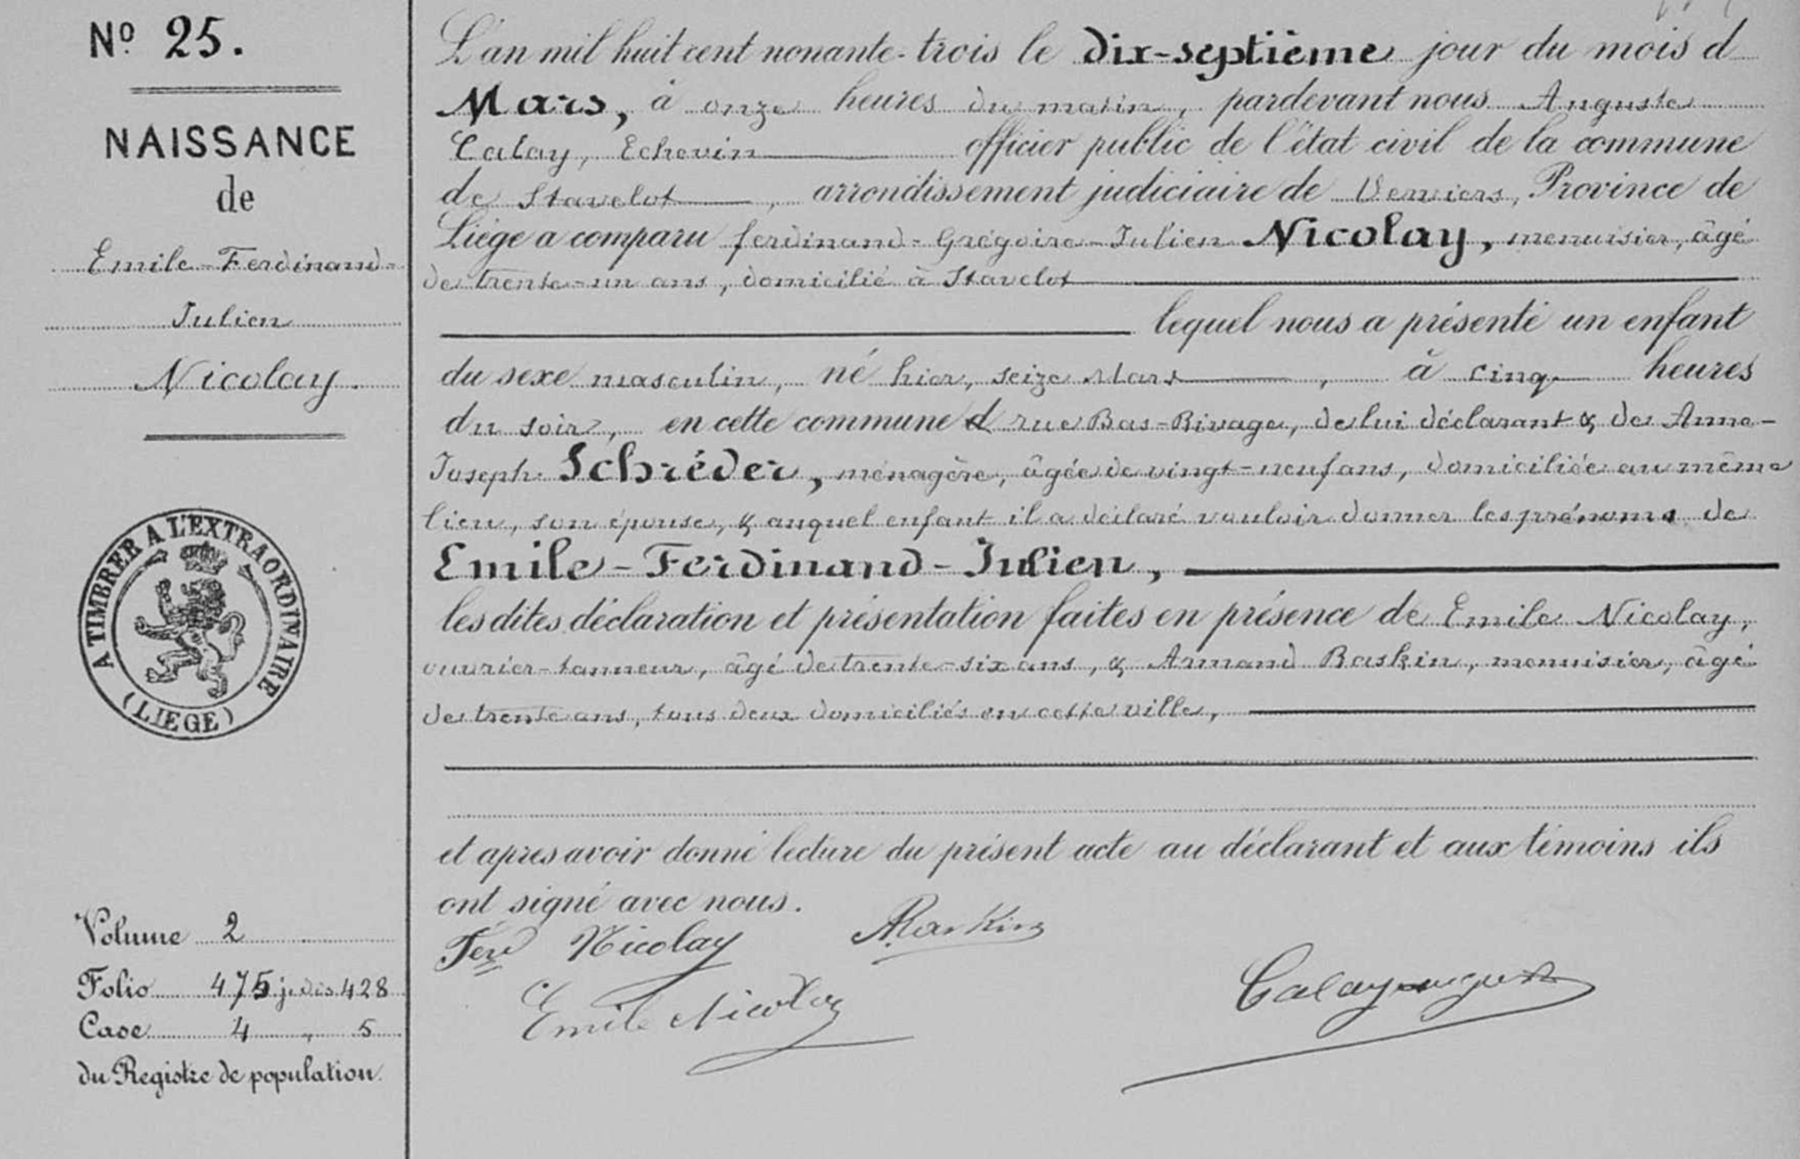 Nº 25.
NAISSANCE
de
Emile-Ferdinand-
Julien
Nicolay.
A TIMBRER A L'EXTRAORDINAIRE
(LIEGE)
Volume 2
Folio 475 428
Case 4 " 5
du Registre de population.
L'an mil huit cent nonante-trois le dix-septième jour du mois d
Mars, à onze heures du matin, pardevant nous Auguste
Calay, Echevin officier public de l'état civil de la commune
de Stavelot, arrondissement judiciaire de Verviers, Province de
Liège a comparu ferdinand-Grégoire-Julien Nicolay, menuisier, âgé
de trente-un ans, domicilié à Stavelot
lequel nous a présenté un enfant
du sexe masculin, né hier, seize Mars, à cinq heures
du soir, en cette commune d rue Bas-Rivage, de lui déclarant & de Anne-
Joseph Schréder, ménagère, âgée de vingt-neuf ans, domiciliée au même
lieu, son épouse, & auquel enfant il a déclaré vouloir donner les prénoms de
Emile-Ferdinand-Julien,
les dites déclaration et présentation faites en présence de Emile Nicolay,
ouvrier-tanneur, âgé de trente-six ans, & Armand Baskin, menuisier, âgé
de trente ans, tous deux domiciliés en cette ville,
et après avoir donné lecture du présent acte au déclarant et aux témoins ils
ont signé avec nous.
Ferd Nicolay
Emile Nicolay
Calay August